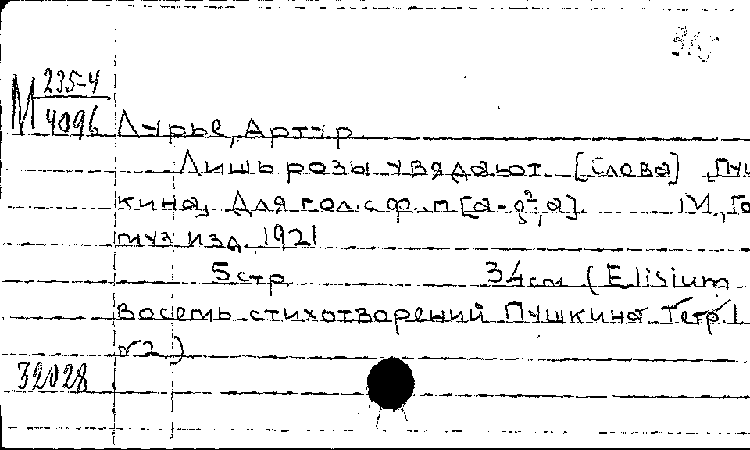 М 235-4
4096
Лурье, Артур
Лишь розы увядают. [Слова] Пуш
кина, Для гол. с ф.-п [a-g²; a]. М., Го
муз изд. 1921
5 стр 34 см (Elisium
Восемь стихотворений Пушкина Тетр. 1
№ 2)
32028